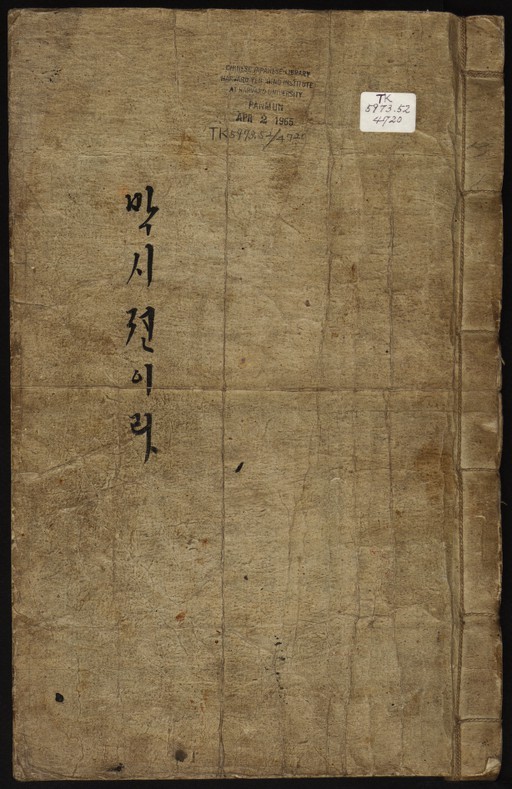 CHINESE-JAPANESE LIBRARY
HARVARD-YENCHING INSTITUTE
AT HARVARD UNIVERSITY
PANMUN
APR 2 1955
TK5973.52/4720
TK
5973.52
4720
박시젼이라